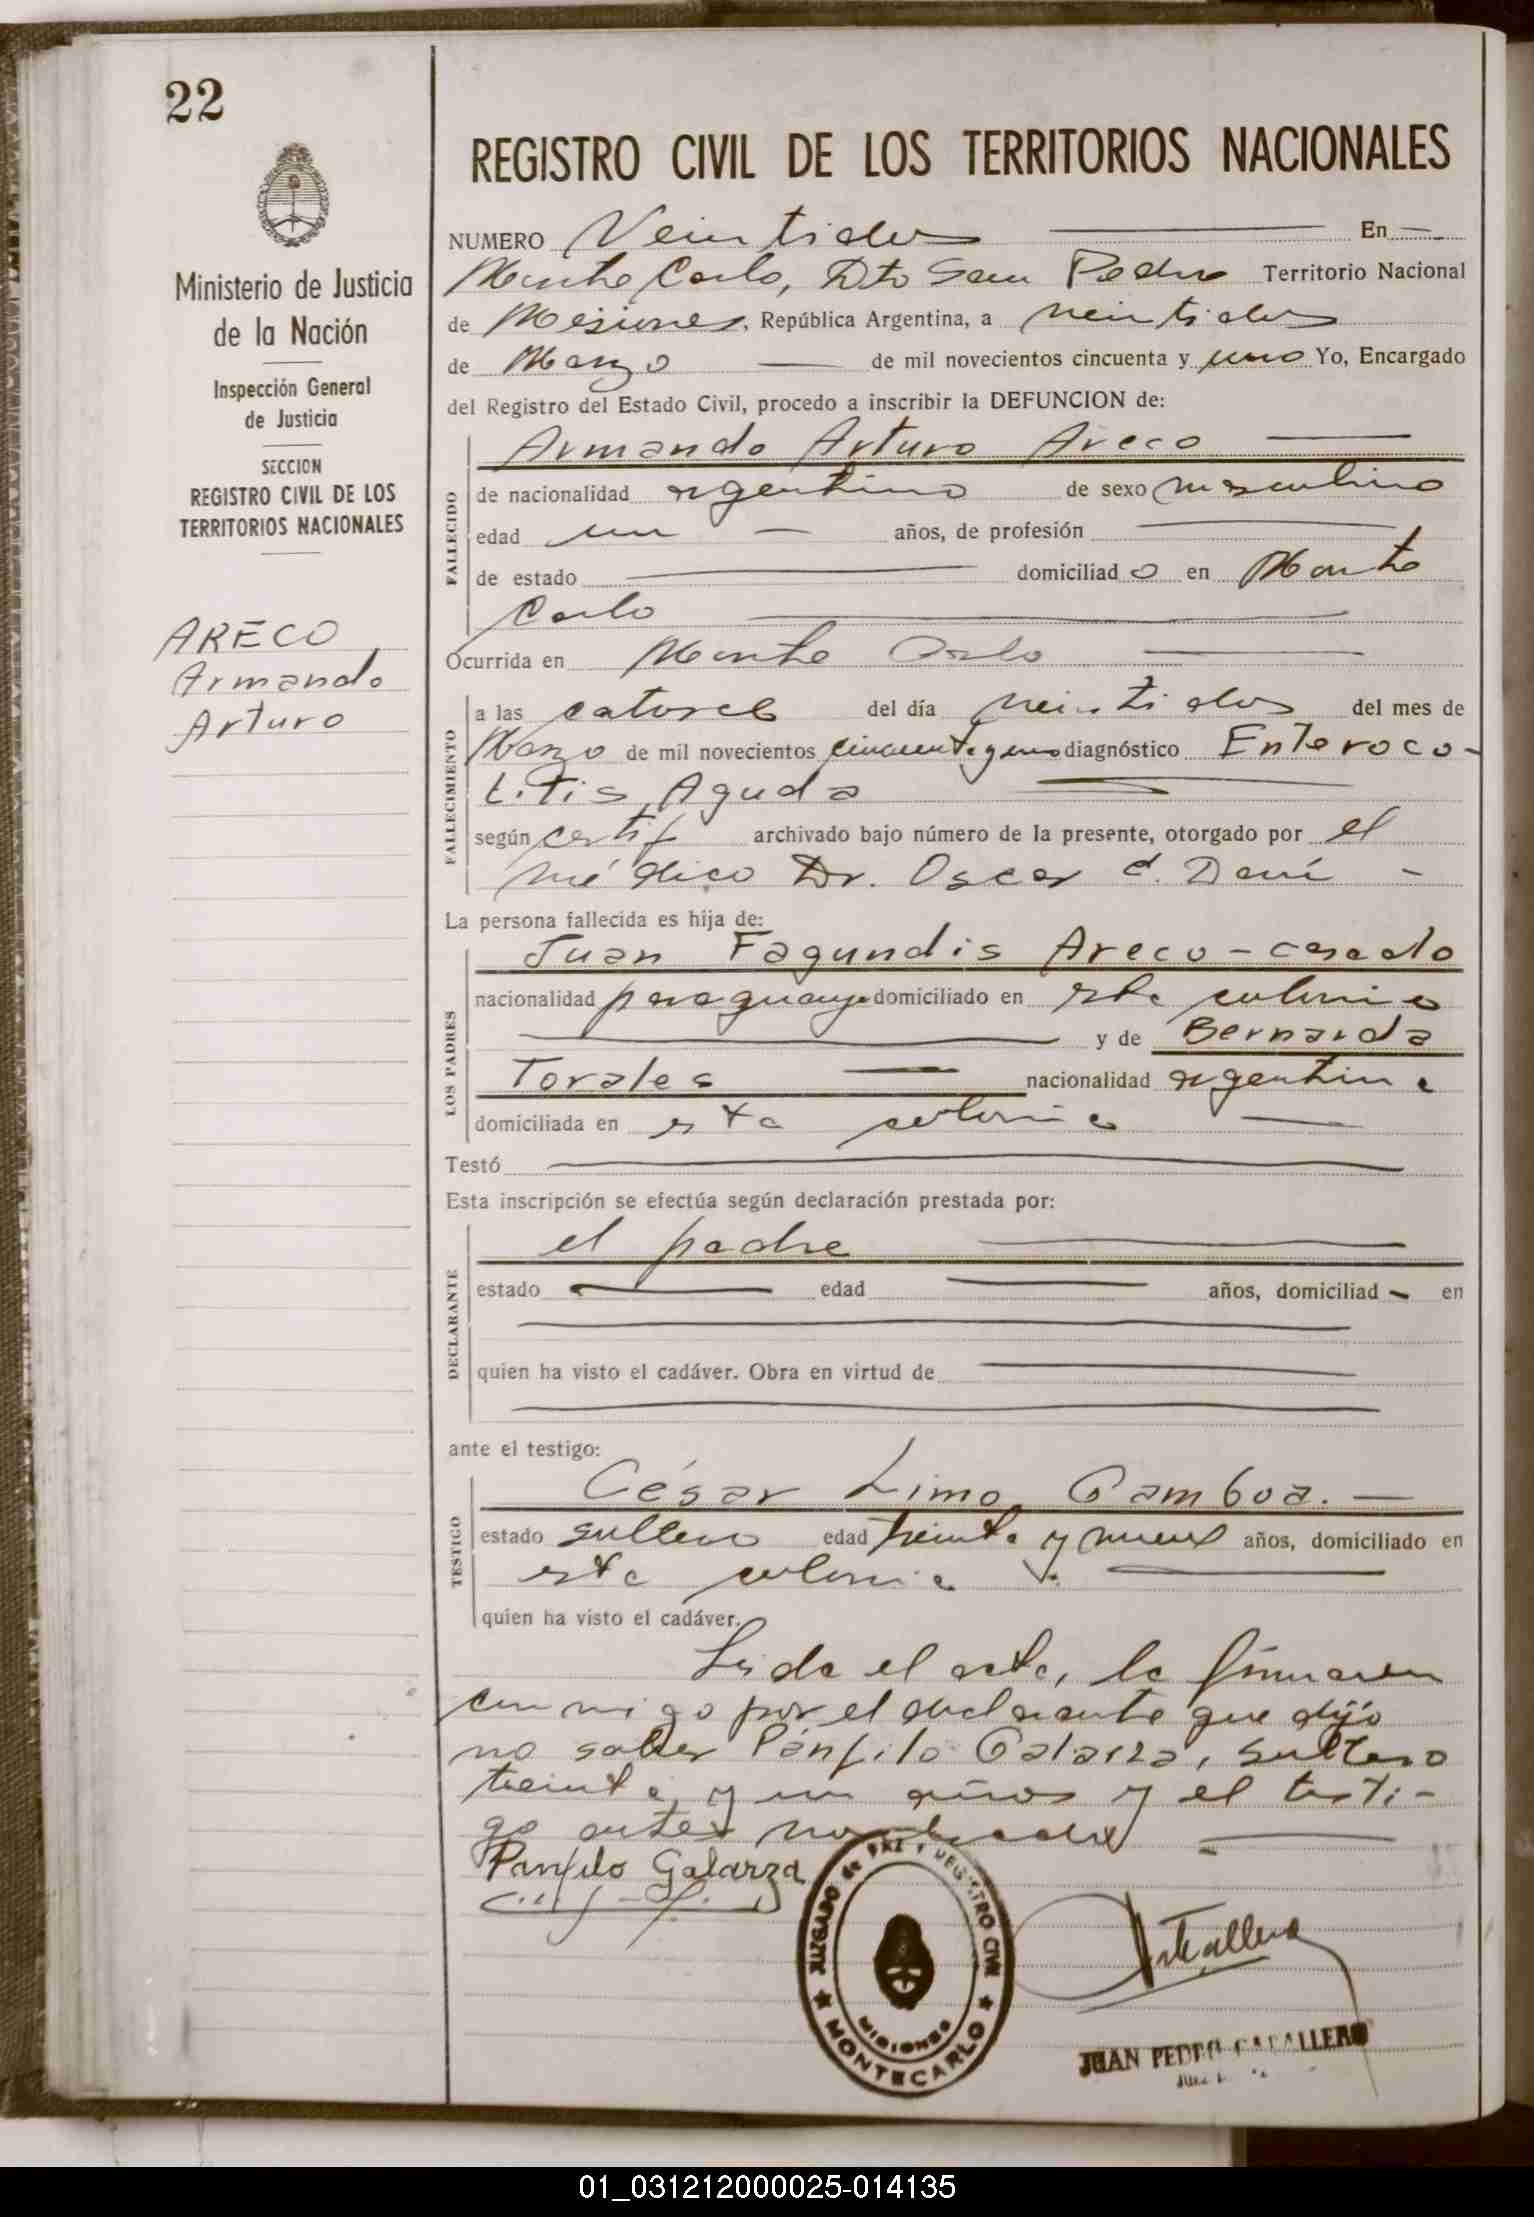 22
Ministerio de Justicia
de la Nación
Inspección General
de Justicia
SECCION
REGISTRO CIVIL DE LOS
TERRITORIOS NACIONALES
ARECO
Armando
Arturo
REGISTRO CIVIL DE LOS TERRITORIOS NACIONALES
NUMERO Veintidos En
Monte Carlo, Dto San Pedro Territorio Nacional
de Misiones, República Argentina, a veintidos
de Marzo de mil novecientos cincuenta y uno Yo, Encargado
del Registro del Estado Civil, procedo a inscribir la DEFUNCION de:
Armando Arturo Areco
FALLECIDO
de nacionalidad argentino de sexo masculino
edad un años, de profesión
de estado domiciliado en Monte
Carlo
Ocurrida en Monte Carlo
FALLECIMIENTO
a las catorce del día veintidos del mes de
Marzo de mil novecientos cincuenta y uno diagnóstico Enteroco-
litis Aguda
según certif archivado bajo número de la presente, otorgado por el
médico Dr. Oscar
La persona fallecida es hija de:
LOS PADRES
Juan Fagundis Areco - casado
nacionalidad paraguaya domiciliado en esta colonia
y de Bernarda
Torales nacionalidad argentina
domiciliada en esta colonia
Testó
Esta inscripción se efectúa según declaración prestada por:
DECLARANTE
el padre
estado edad años, domiciliad en
quien ha visto el cadáver. Obra en virtud de
ante el testigo:
TESTIGO
César Limo Gamboa. —
estado soltero edad treinta y nueve años, domiciliado en
esta colonia
quien ha visto el cadáver.
Leida el acta, la firmaron
conmigo por el declarante que dijo
no saber Pánfilo Galarza, soltero
treinta y un años y el testi-
go antes nombrado
Panfilo Galarza
JUZGADO de PAZ Y REGISTRO CIVIL
MISIONES
★ MONTECARLO ★
JUAN PEDRO CABALLERO
01_031212000025-014135